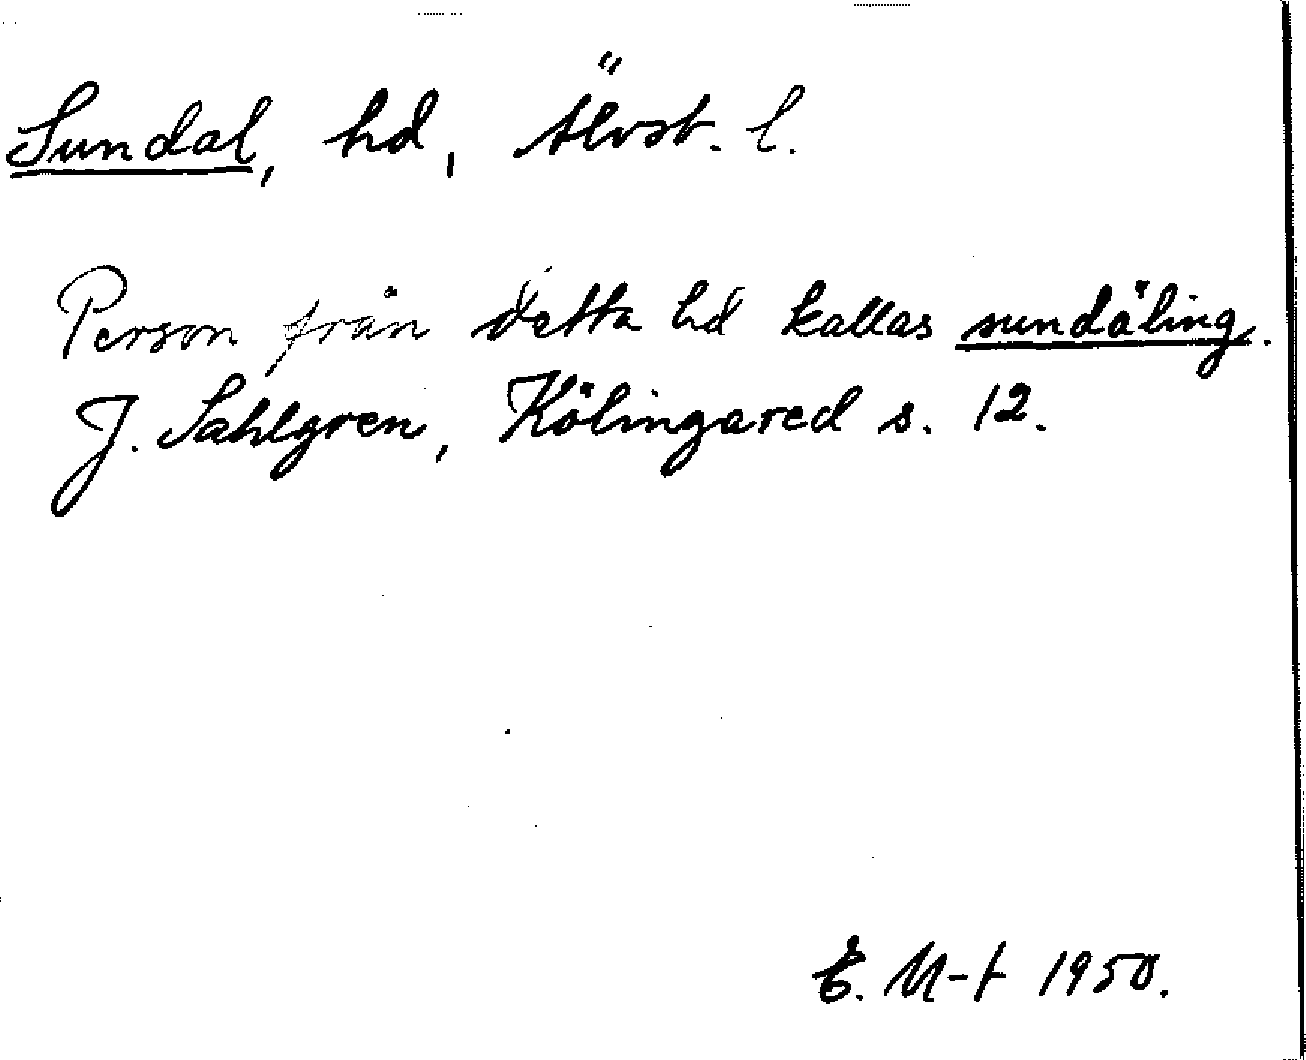 Sundal, hd, Älvsb. l.
Person från detta hd kallas sundäling.
J. Sahlgren, Kölingared s. 12.
E. M-t 1950.